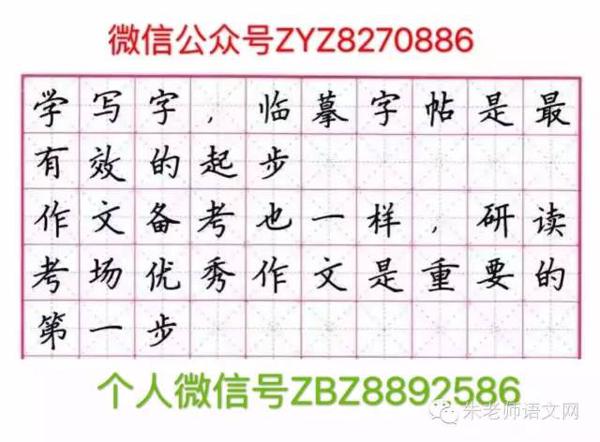 微信公众号ZYZ8270886
学写字，临摹字帖是最
有效的起步
作文备考也一样，研读
考场优秀作文是重要的
第一步
个人微信号ZBZ8892586
朱老师语文网